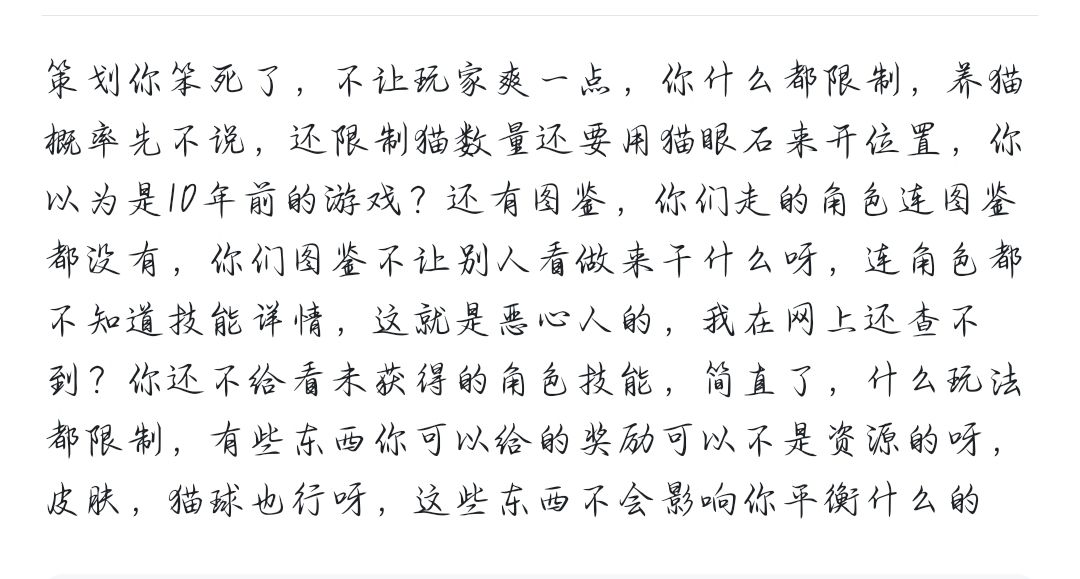 策划你笨死了，不让玩家爽一点，你什么都限制，养猫
概率先不说，还限制猫数量还要用猫眼石来开位置，你
以为是10年前的游戏？还有图鉴，你们走的角色连图鉴
都没有，你们图鉴不让别人看做来干什么呀，连角色都
不知道技能详情，这就是恶心人的，我在网上还查不
到？你还不给看未获得的角色技能，简直了，什么玩法
都限制，有些东西你可以给的奖励可以不是资源的呀，
皮肤，猫球也行呀，这些东西不会影响你平衡什么的